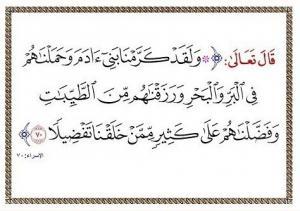 قَالَ تَعَالَىٰ: ﴿۞ وَلَقَدۡ كَرَّمۡنَا بَنِيٓ ءَادَمَ وَحَمَلۡنَٰهُمۡ
فِي ٱلۡبَرِّ وَٱلۡبَحۡرِ وَرَزَقۡنَٰهُم مِّنَ ٱلطَّيِّبَٰتِ
وَفَضَّلۡنَٰهُمۡ عَلَىٰ كَثِيرٖ مِّمَّنۡ خَلَقۡنَا تَفۡضِيلٗا ٧٠﴾
الإسراء: ٧٠